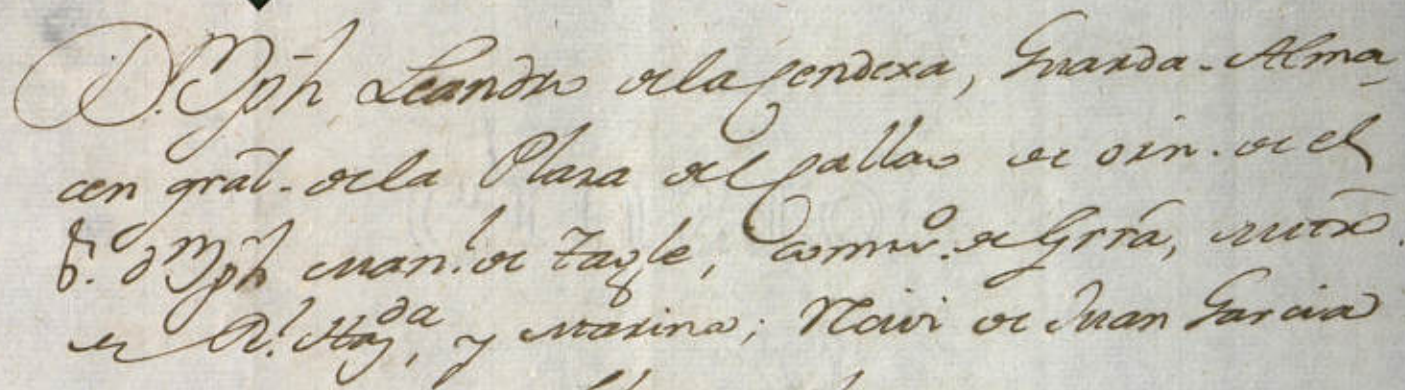 D.n Jph Leandro de la Cendexa, Guarda-Alma,
cen gral. de la Plaza del Callao de orn. de el
S.r d.n Jph Man.l de Tagle, Comis.o de Grra, Mtro.
de R.l Haz.da, y Marina; Reciví de Juan Garcia